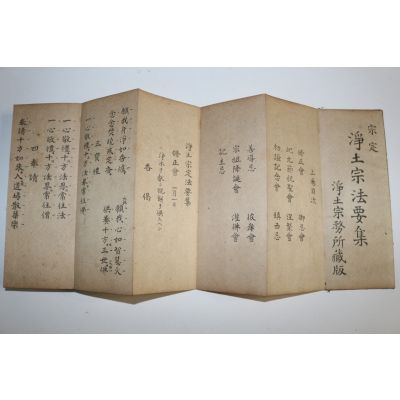 宗定
淨土宗法要集
淨土宗務所藏版
上卷目次
修正會 御忌會
涅槃會
初證記念會 鎮西忌
善導忌 彼岸會
宗祖降誕會 灌佛會
記主忌
淨土宗定法要集
修正會 一月一日
香偈
願我身淨如香爐 願我心如智慧火
念念焚燒戒定香 供養十方三世佛
三寶禮
一心敬禮十方法界常住佛
一心敬禮十方法界常住法
一心敬禮十方法界常住僧
四奉請
奉請十方如來入道場散華樂